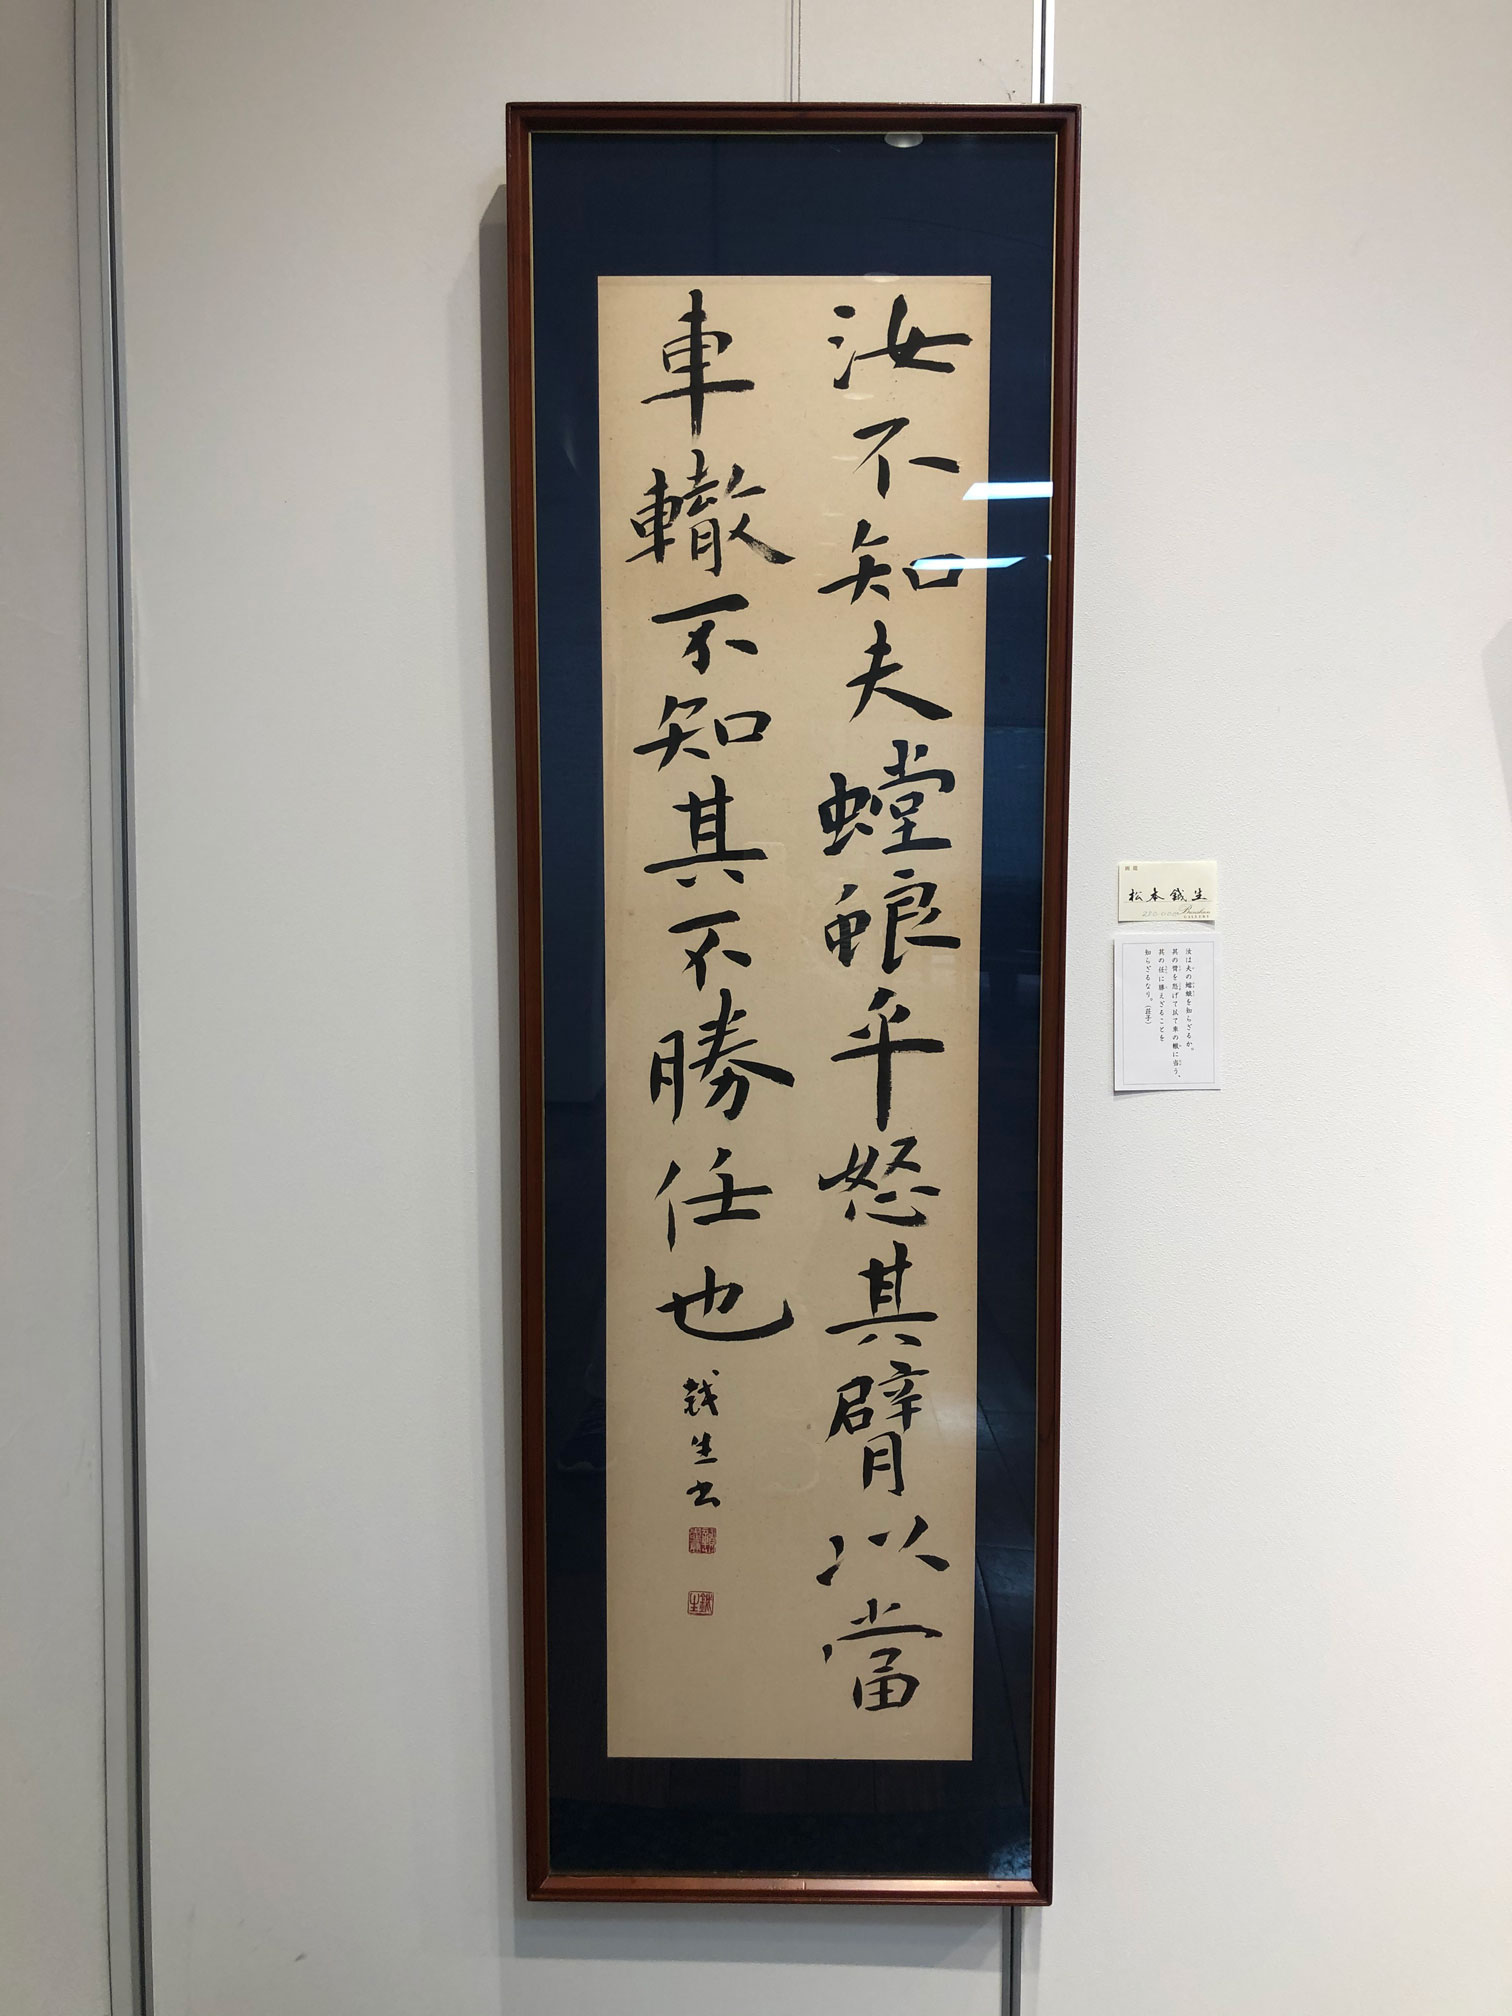 汝不知夫螳蜋乎怒其臂以當
車轍不知其不勝任也
鉞生書
松本鉞生
汝は夫の螳螂を知らざるか。
其の臂を怒げて以て車の轍に当う、
其の任に勝えざることを
知らざるなり。（荘子）